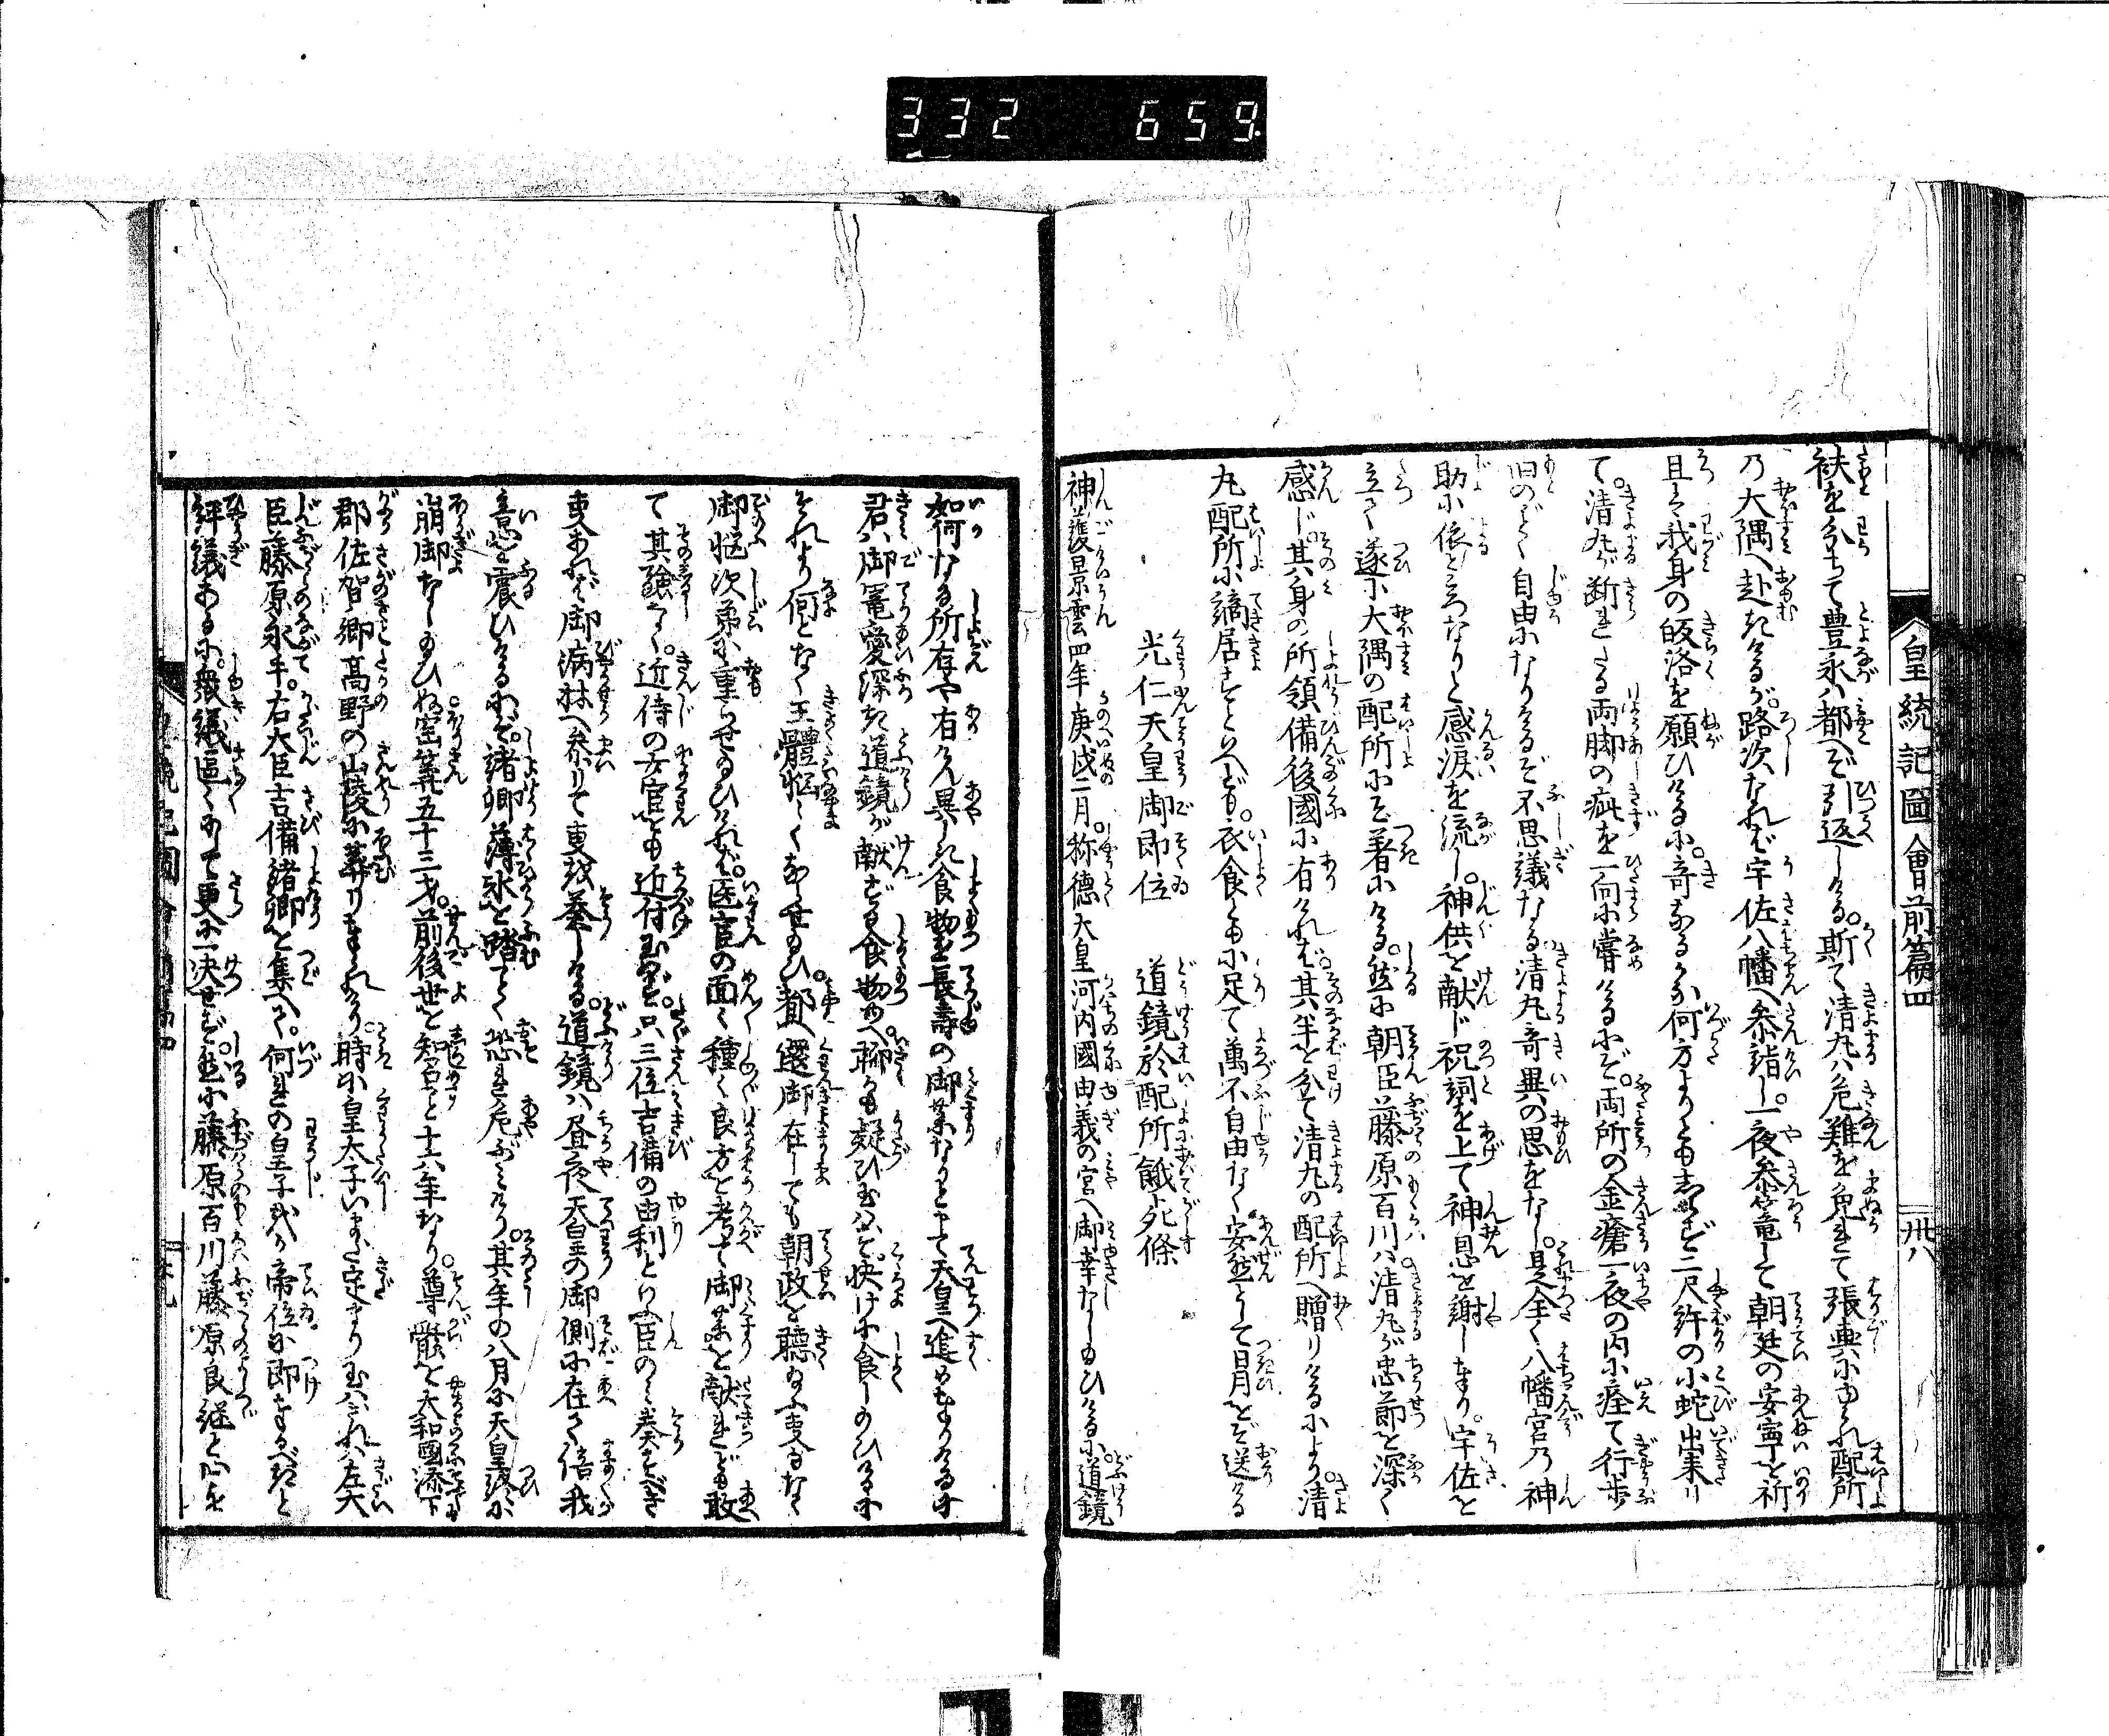 332 659
皇統記圖會前篇四
卅八
袂を分ちて豊永ハ都へぞ引返しける。斯て清丸ハ危難を免れて張輿にゆられ配所
乃大隅へ赴きけるが。路次なれバ宇佐八幡へ参詣し。一夜参篭して朝廷の安寧を祈
且ハ我身の皈洛を願ひけるに。奇なるかな何方よりとも志らず二尺許の小蛇出来り
て。清丸が断れたる両脚の疵を一向に嘗けるにぞ。両所の金瘡一夜の内に痊て行歩
旧のごく自由になりけるぞ不思議なる清丸竒異の思をなし。是全く八幡宮乃神
助に依ところなりと感涙を流し。神供を献じ祝詞を上て神恩を謝し奉り。宇佐を
立て遂に大隅の配所にぞ着にける。然に朝臣藤原百川ハ清丸が忠節を深く
感じ。其身の所領備後國に有けれバ。其半を分て清丸の配所へ贈りけるにより。清
丸配所に謫居すといへども。衣食とも小足て萬不自由なく安然として日月をぞ送ける
光仁天皇御即位　道鏡於配所餓死條
神護景雲四年庚戌二月。称德天皇河内國由義の宮へ御幸なし給ひけるに。道鏡
如何なる所存や有けん異しき食物を長壽の御薬なりとて天皇へ進め奉りけるす
君ハ御寵愛深き道鏡が献ずる食物ゆへ。聊も疑ひ玉ハず。快けに食し給ひけるす
それより何となく玉體悩しくならせ給ひ。都へ還御在しても朝政を聴給ふ事なく
御悩次第に重らせ給ひけれバ。医官の面々種々良方を考て御薬を献れども敢
て其験なく。近侍の女官とも近付玉ハず。只三位吉備の由利といふ臣のミ奏すべき
事あれバ御病牀へ参りて事を奏しける。道鏡ハ昼夜天皇の御側に在て倍我
意を震ひけるゆへ。諸卿薄氷を踏ごとく恐れ危ぶミけり。其年の八月に天皇終に
崩御なし給ひぬ宝筭五十三才。前後世を知召こと十六年なり。尊骸を大和國添下
郡佐貴郷髙野の山陵に葬り奉れり。時に皇太子いまだ定まり玉ハざれハ左大
臣藤原永手。右大臣吉備諸卿を集へて。何れの皇子をか帝位に即奉るべきと
評議あるに。衆議區々にて更に一决せず。然に藤原百川藤原良継と心を